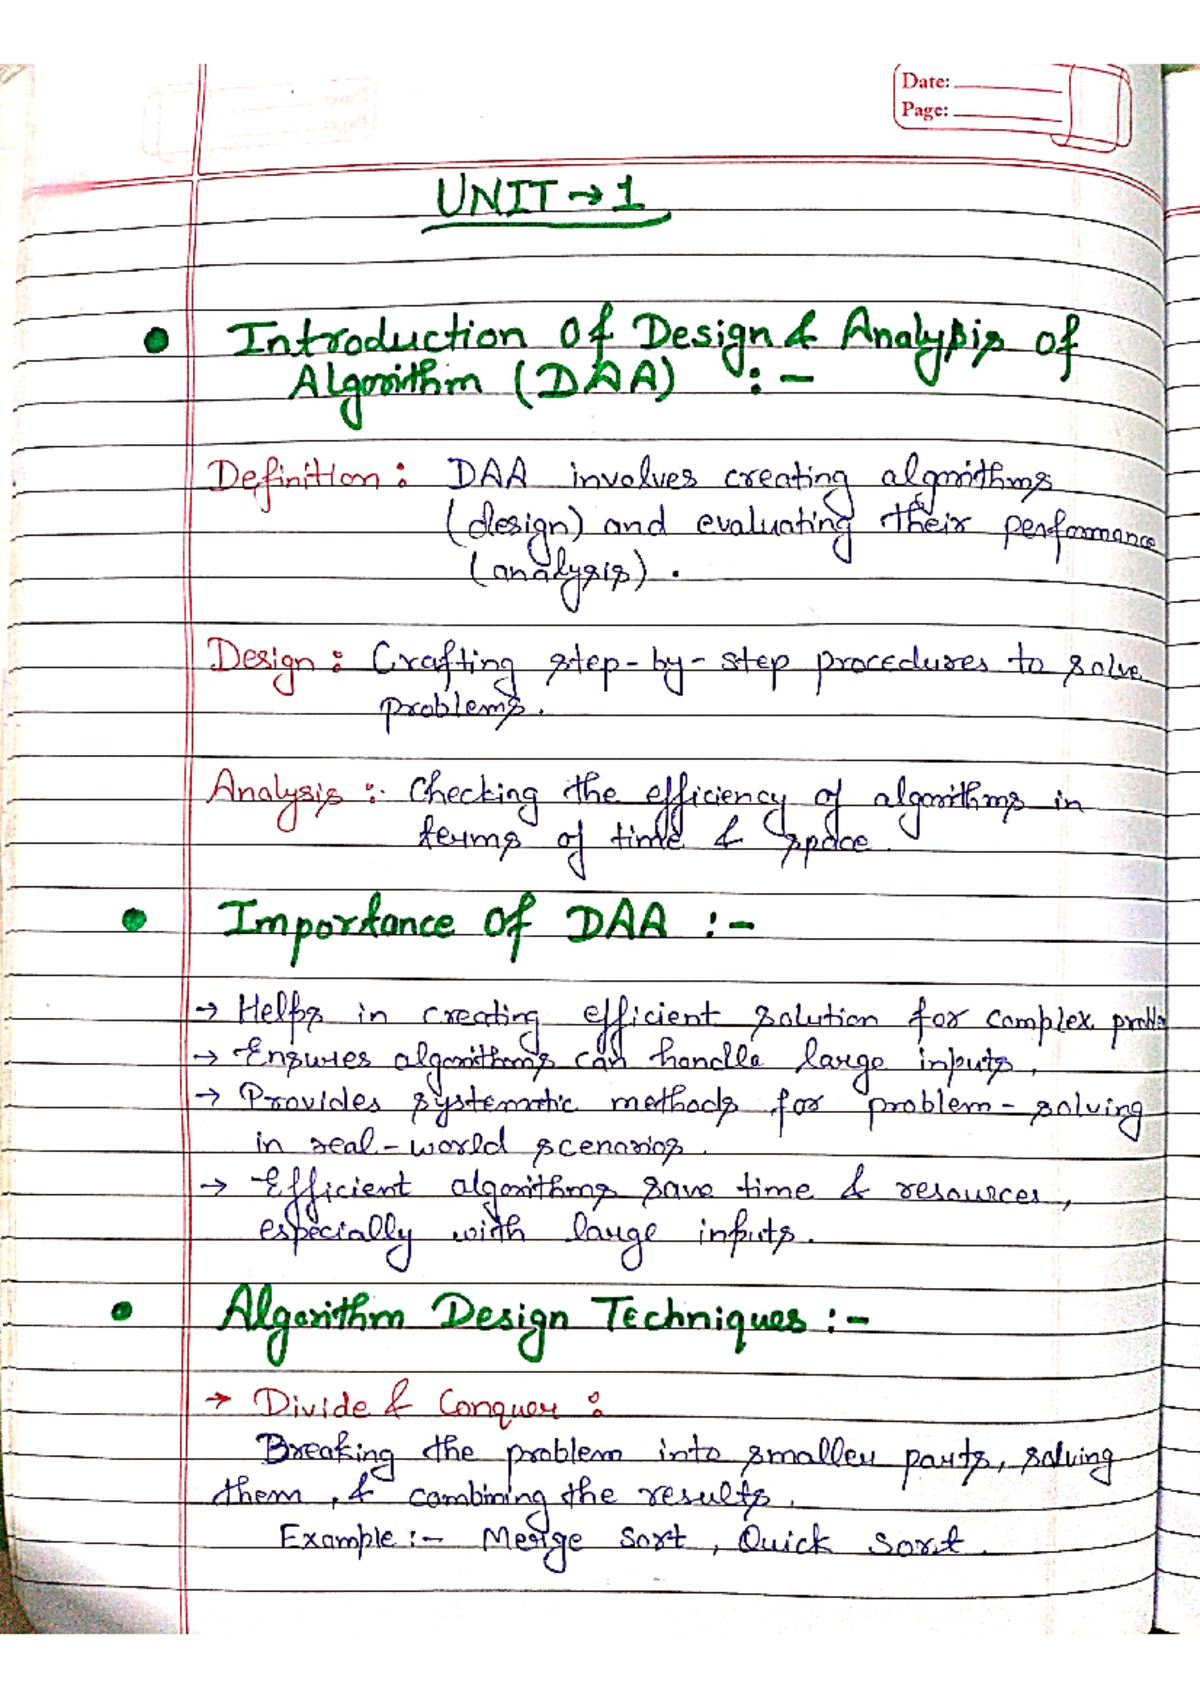 Date:
Page:
UNIT → 1
• Introduction Of Design & Analysis of
Algorithm (DAA) :-
Definition : DAA involves creating algorithms
(design) and evaluating their performance
(analysis).
Design : Crafting step-by-step procedures to solve
problems.
Analysis :- Checking the efficiency of algorithms in
terms of time & space.
• Importance Of DAA :-
→ Helps in creating efficient solution for complex
→ Ensures algorithms can handle large inputs.
→ Provides systematic methods for problem-solving
in real-world scenarios.
→ Efficient algorithms save time & resources,
especially with large inputs.
• Algorithm Design Techniques :-
→ Divide & Conquer :
Breaking the problem into smaller parts, solving
them, & combining the results.
Example :- Merge Sort, Quick Sort.